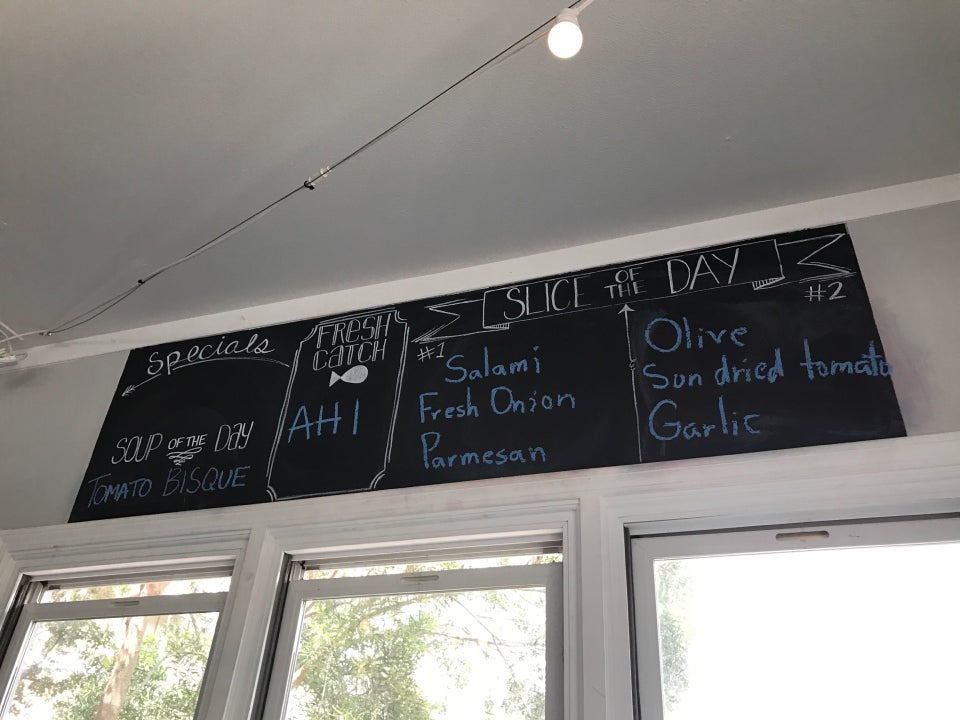 Specials
SOUP OF THE DAY
TOMATO BISQUE
FRESH
CATCH
AHI
SLICE OF THE DAY
#1
Salami
Fresh Onion
Parmesan
#2
Olive
Sun dried tomato
Garlic